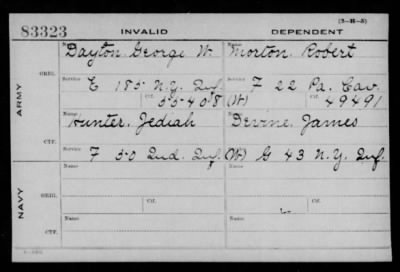 (3-H-5)
83323 INVALID DEPENDENT
ARMY
ORIG.
Name Dayton George W. Name Morton, Robert
Service E 185 N.Y. Inf. Service F 22 Pa. Cav.
Ctf. 55408 (W) Ctf. 49491
CTF.
Name Hunter, Jediah Name Devine, James
Service F 50 Ind. Inf. (W) G 43 N.Y. Inf.
NAVY
ORIG.
Name Ctf. Name Ctf.
CTF.
Name Name